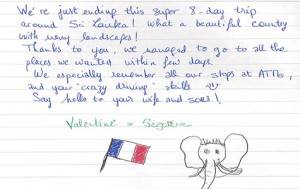 We're just ending this super 8-day trip
around Sri Lanka! What a beautiful country
with many landscapes!
Thanks to you, we managed to go to all the
places we wanted within a few days.
We especially remember all our stops at ATMs,
and your "crazy driving" skills
Say hello to your wife and sons!
Valentine &